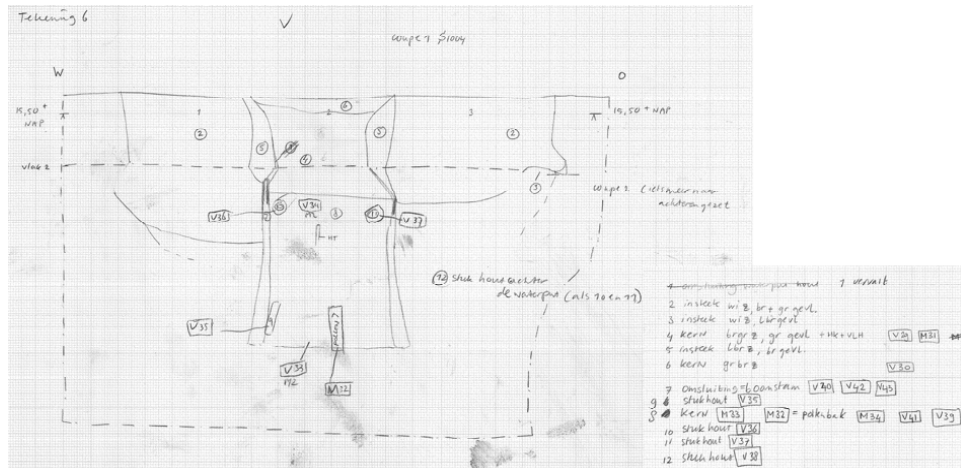 Tekening 6
V
coupe 1 S1004
W
O
15,50 + NAP
15,50 + NAP
1
2
3
6
2
5
5
2
4
vlak 2
3
coupe 2 iets meer naar achteren gezet
V36
10
V34
M2
8
11
V37
HT
12 stuk hout achter
de waterput (als 10 en 11)
V35
9
pollen ?
V33
M2
M32
1 omsluiting waterput hout 1 vervalt
2 insteek wi z, br + gr gevl.
3 insteek wi z, lbr gevl
4 kern brgr z, gr gevl + HK + VLH V29 M31
5 insteek lbr z, br gevl.
6 kern gr br z V30
7 omsluiting = boomstam V40 V42 V43
9 stuk hout V35
8 kern M33 M32 = pollenbak M34 V41 V39
10 stuk hout V36
11 stuk hout V37
12 stuk hout V38